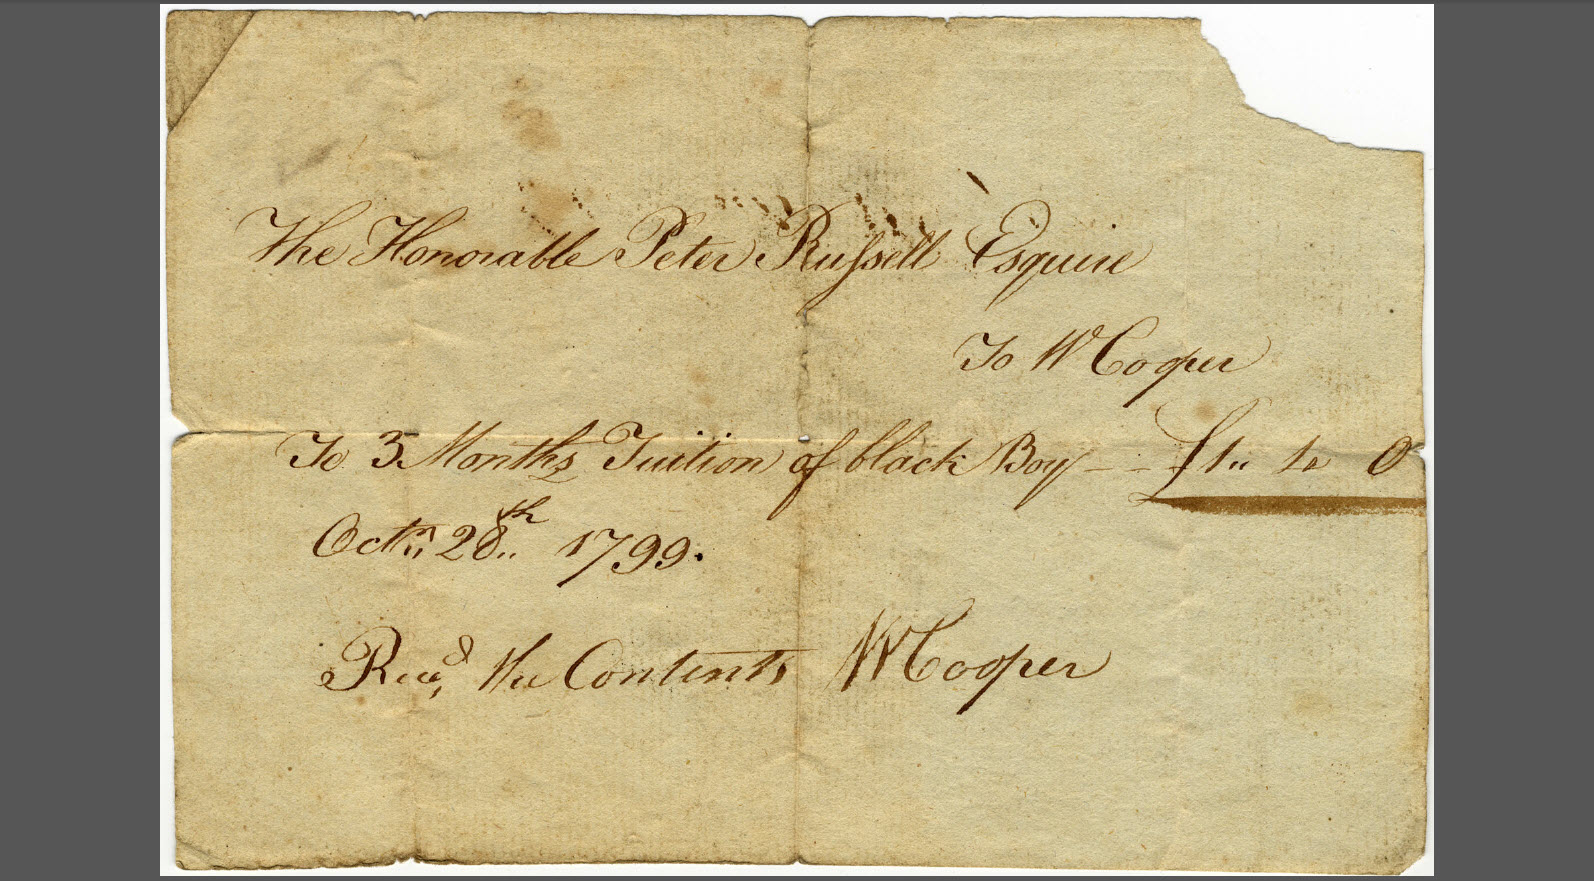 The Honorable Peter Russell Esquire
To W Cooper
To 3 Months Tuition of black Boy - - £1 ,, 1 ,, 0
Octr,, 28th,, 1799.
Recd, the Contents W Cooper